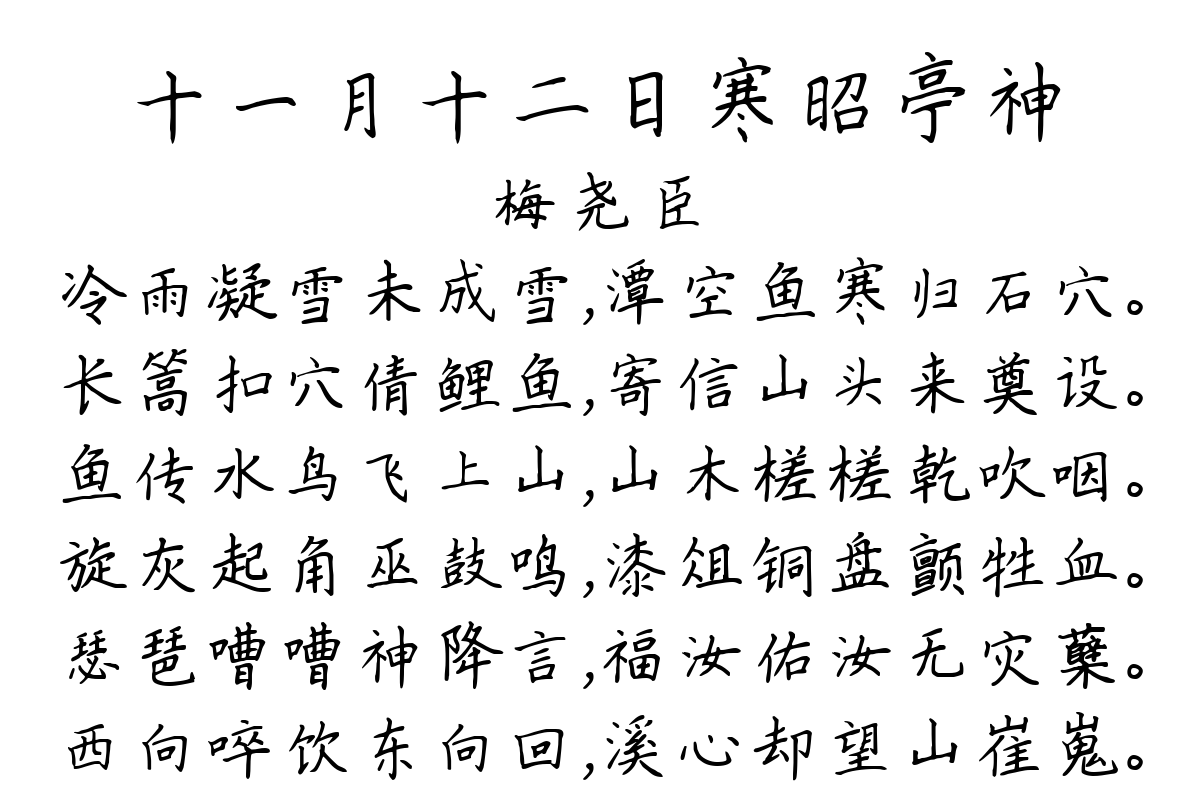 十一月十二日寒昭亭神
梅尧臣
冷雨凝雪未成雪,潭空鱼寒归石穴。
长篙扣穴倩鲤鱼,寄信山头来奠设。
鱼传水鸟飞上山,山木槎槎乾吹咽。
旋灰起角巫鼓鸣,漆俎铜盘颤牲血。
瑟琶嘈嘈神降言,福汝佑汝无灾蘖。
西向啐饮东向回,溪心却望山崔嵬。